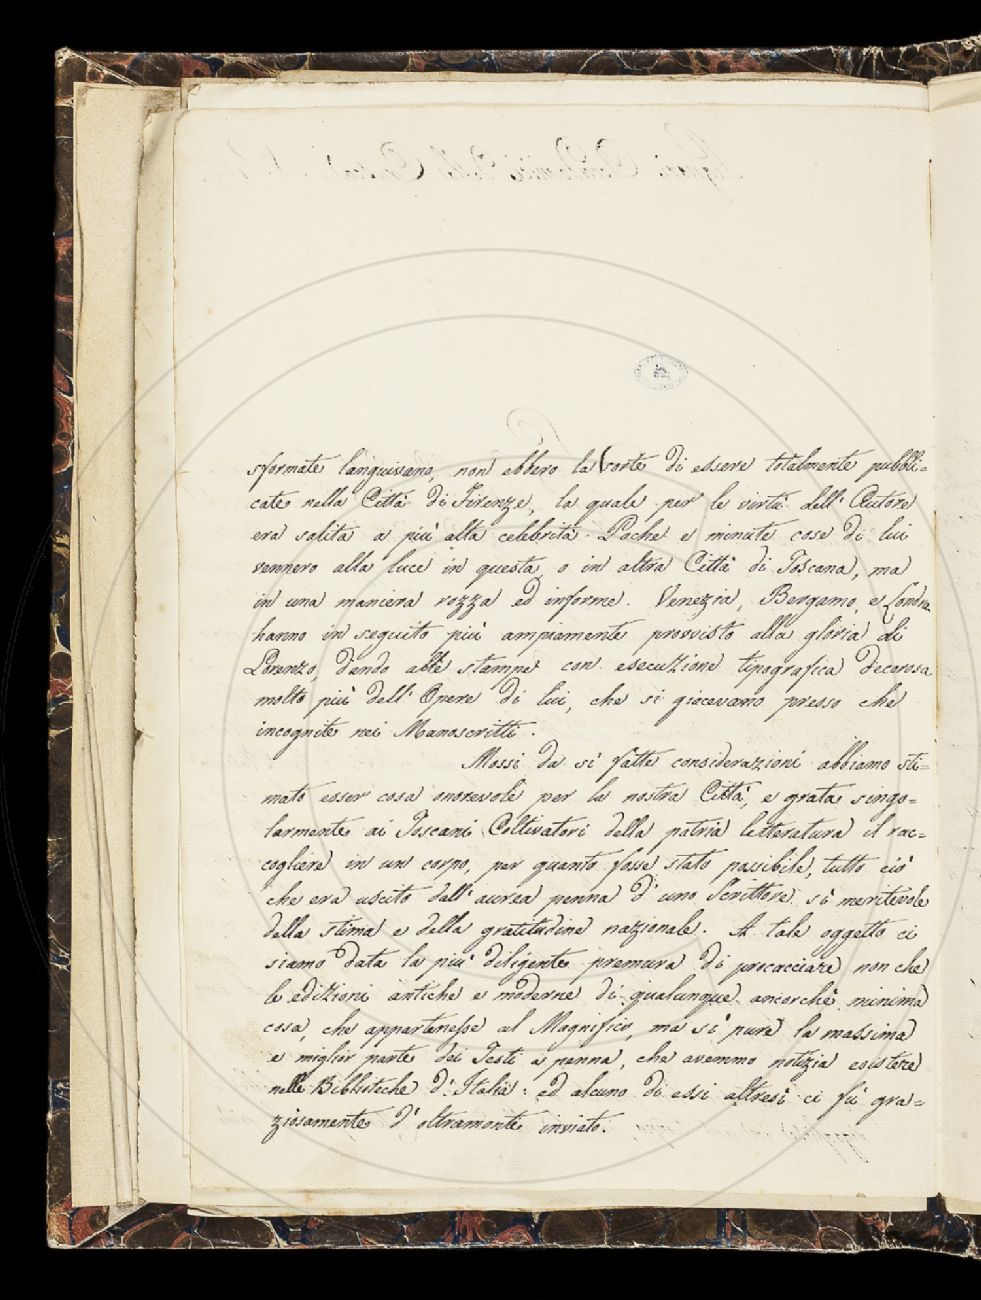 sformate languivano, non ebbero la sorte di essere totalmente pubbli=
cate nella Città di Firenze, la quale per le virtù dell' Autore
era salita a più alta celebrità. Poche e minute cose di lui
vennero alla luce in questa, o in altra Città di Toscana, ma
in una maniera rozza ed informe. Venezia, Bergamo, e Londra
hanno in seguito più ampiamente provvisto alla gloria di
Lorenzo, dando alle stampe con esecuzione tipografica decorosa
molto più dell' Opere di lui, che si giacevano presso che
incognite nei Manoscritti.
Mossi da sì fatte considerazioni abbiamo sti=
mato esser cosa onorevole per la nostra Città, e grata singo=
larmente ai Toscani Coltivatori della patria letteratura il rac=
cogliere in un corpo, per quanto fosse stato possibile, tutto ciò
che era uscito dall' aurea penna d' uno Scrittore sì meritevole
della stima e della gratitudine nazionale. A tale oggetto ci
siamo data la più diligente premura di procacciare non che
le edizioni antiche e moderne di qualunque ancorchè minima
cosa, che appartenesse al Magnifico, ma sì pure la massima
e miglior parte dei Testi a penna, che avemmo notizia esistere
nelle Biblioteche d' Italia: ed alcuno di essi altresì ci fù gra=
ziosamente d' oltramonte inviato.